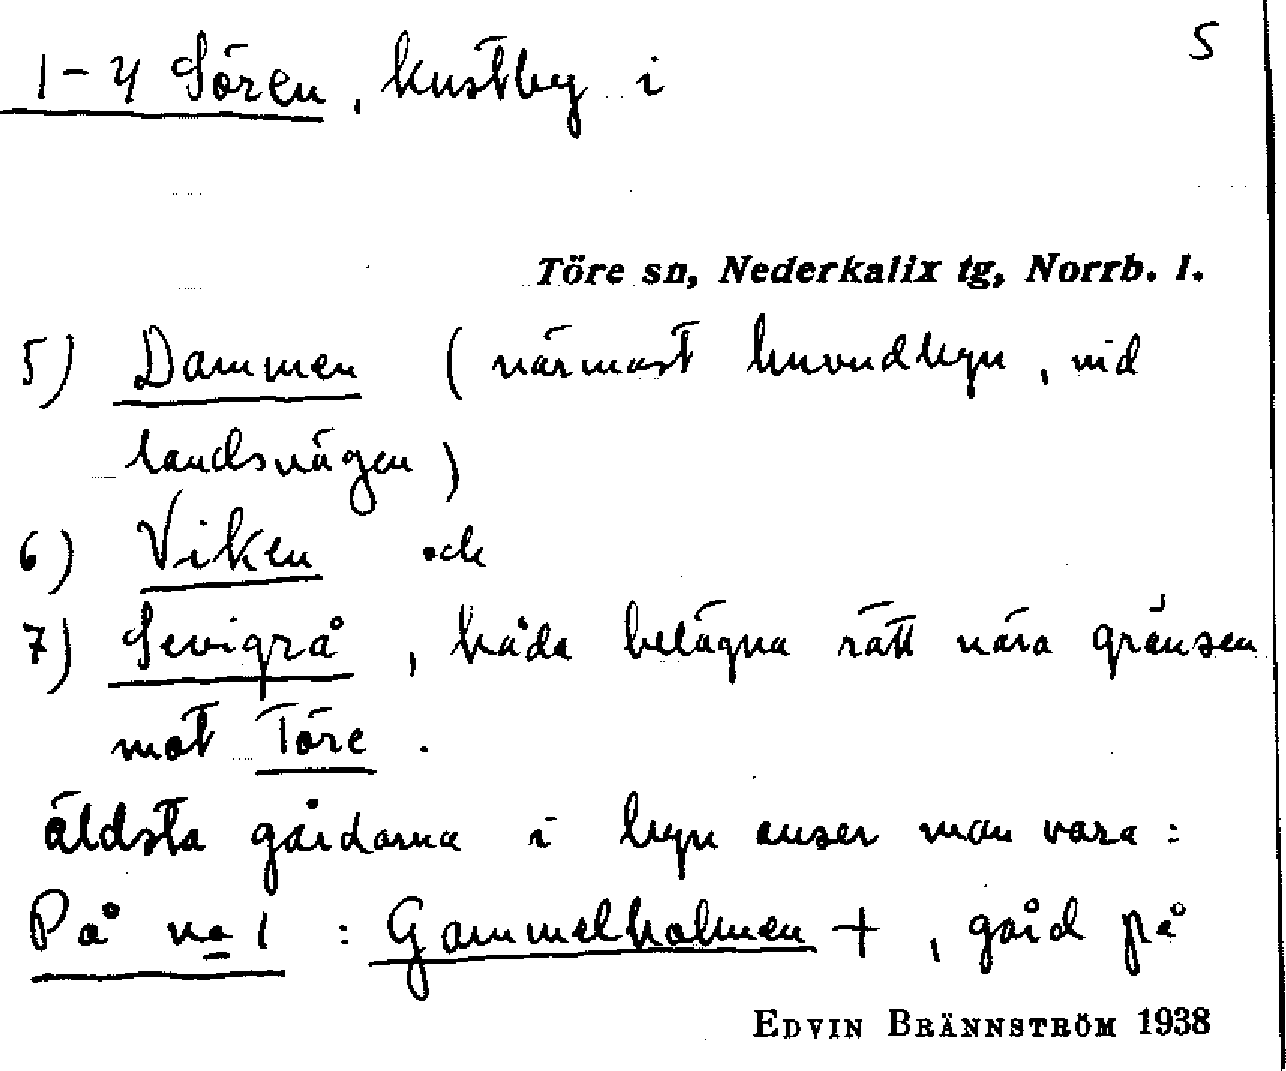 5
1-4 Sören, kustby i
Töre sn, Nederkalix tg, Norrb. l.
5) Dammen (närmast huvudbyn, vid
landsvägen)
6) Viken och
7) Sevigrå, båda belägna rätt nära gränsen
mot Töre.
äldsta gårdarna i byn anser man vara:
På no 1 : Gammelholmen +, gård på
EDVIN BRÄNNSTRÖM 1938